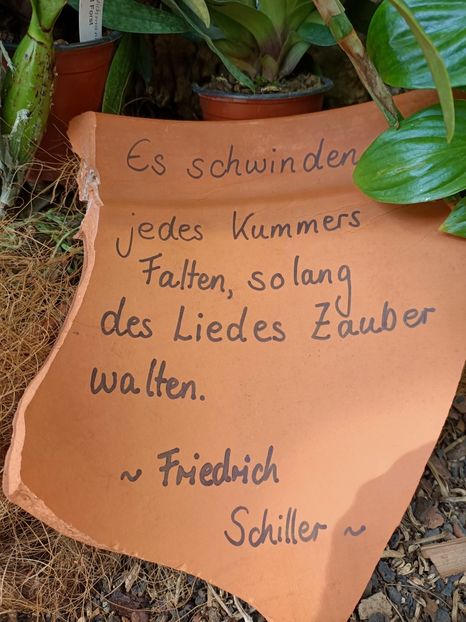 Es schwinden
jedes Kummers
Falten, solang
des Liedes Zauber
walten.
~ Friedrich
Schiller ~